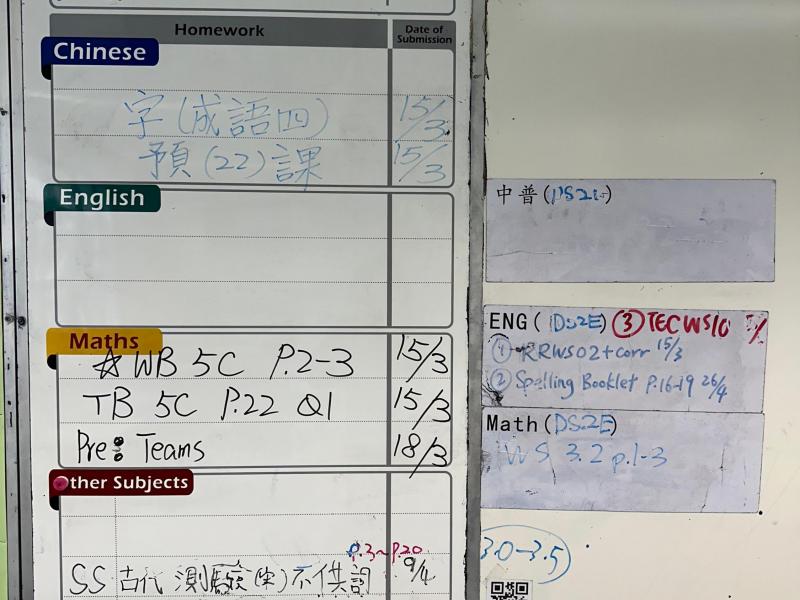 Homework Date of Submission
Chinese
字(成語四) 15/3
預(22)課 15/3
English
Maths
☆ WB 5C P.2-3 15/3
TB 5C P.22 Q1 15/3
Pre: Teams 18/3
Other Subjects
P.3~P.20
SS 古代 測驗(卷)不供詞 9/4
中普(DS2E)
ENG(DS2E) ③TECWS10
① RRWS02+corr 15/3
② Spelling Booklet P.16-19 26/4
Math(DS.2E)
WS 3.2 p.1-3
3.0-3.5